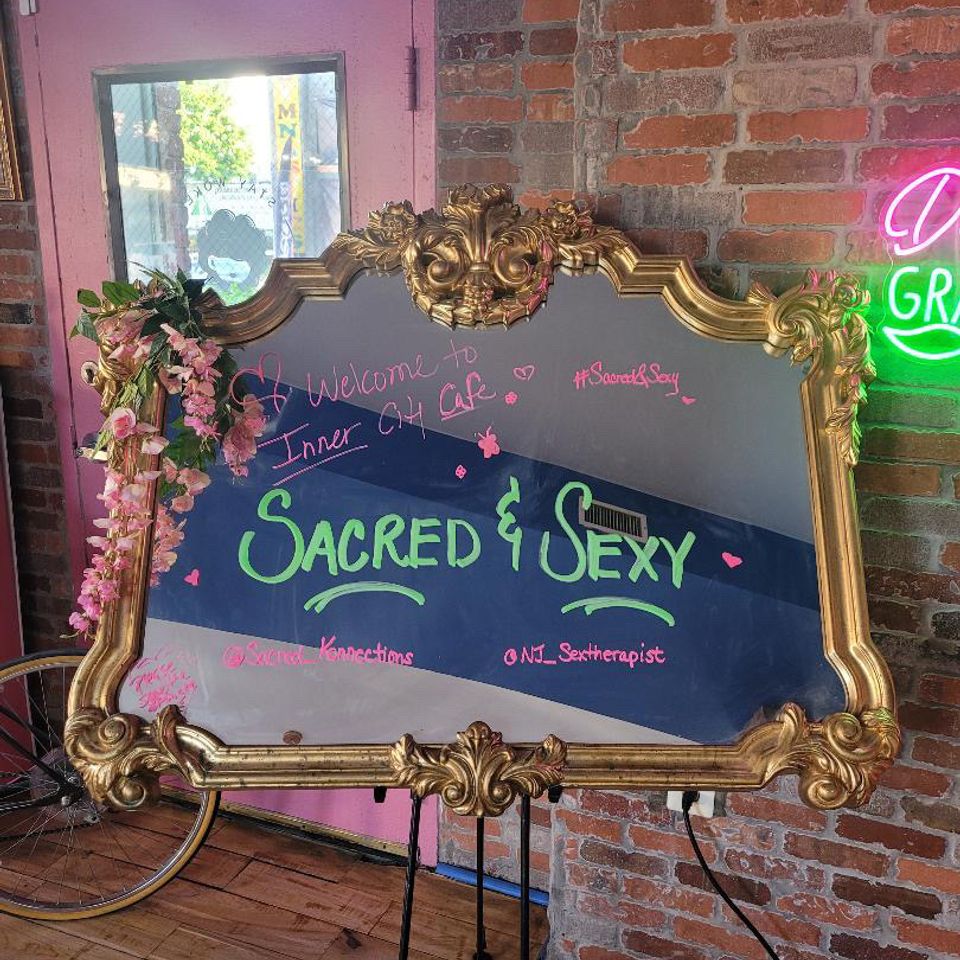 STAY WOKE
Welcome to
Inner City Cafe
#Sacred&Sexy
SACRED & SEXY
@Sacred_Konnections
@NJ_Sextherapist
GRA